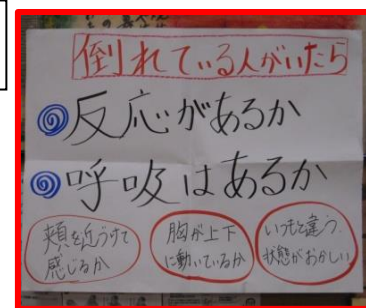 倒れている人がいたら
反応があるか
呼吸はあるか
頬を近づけて
感じるか
胸が上下
に動いているか
いつもと違う
状態がおかしい